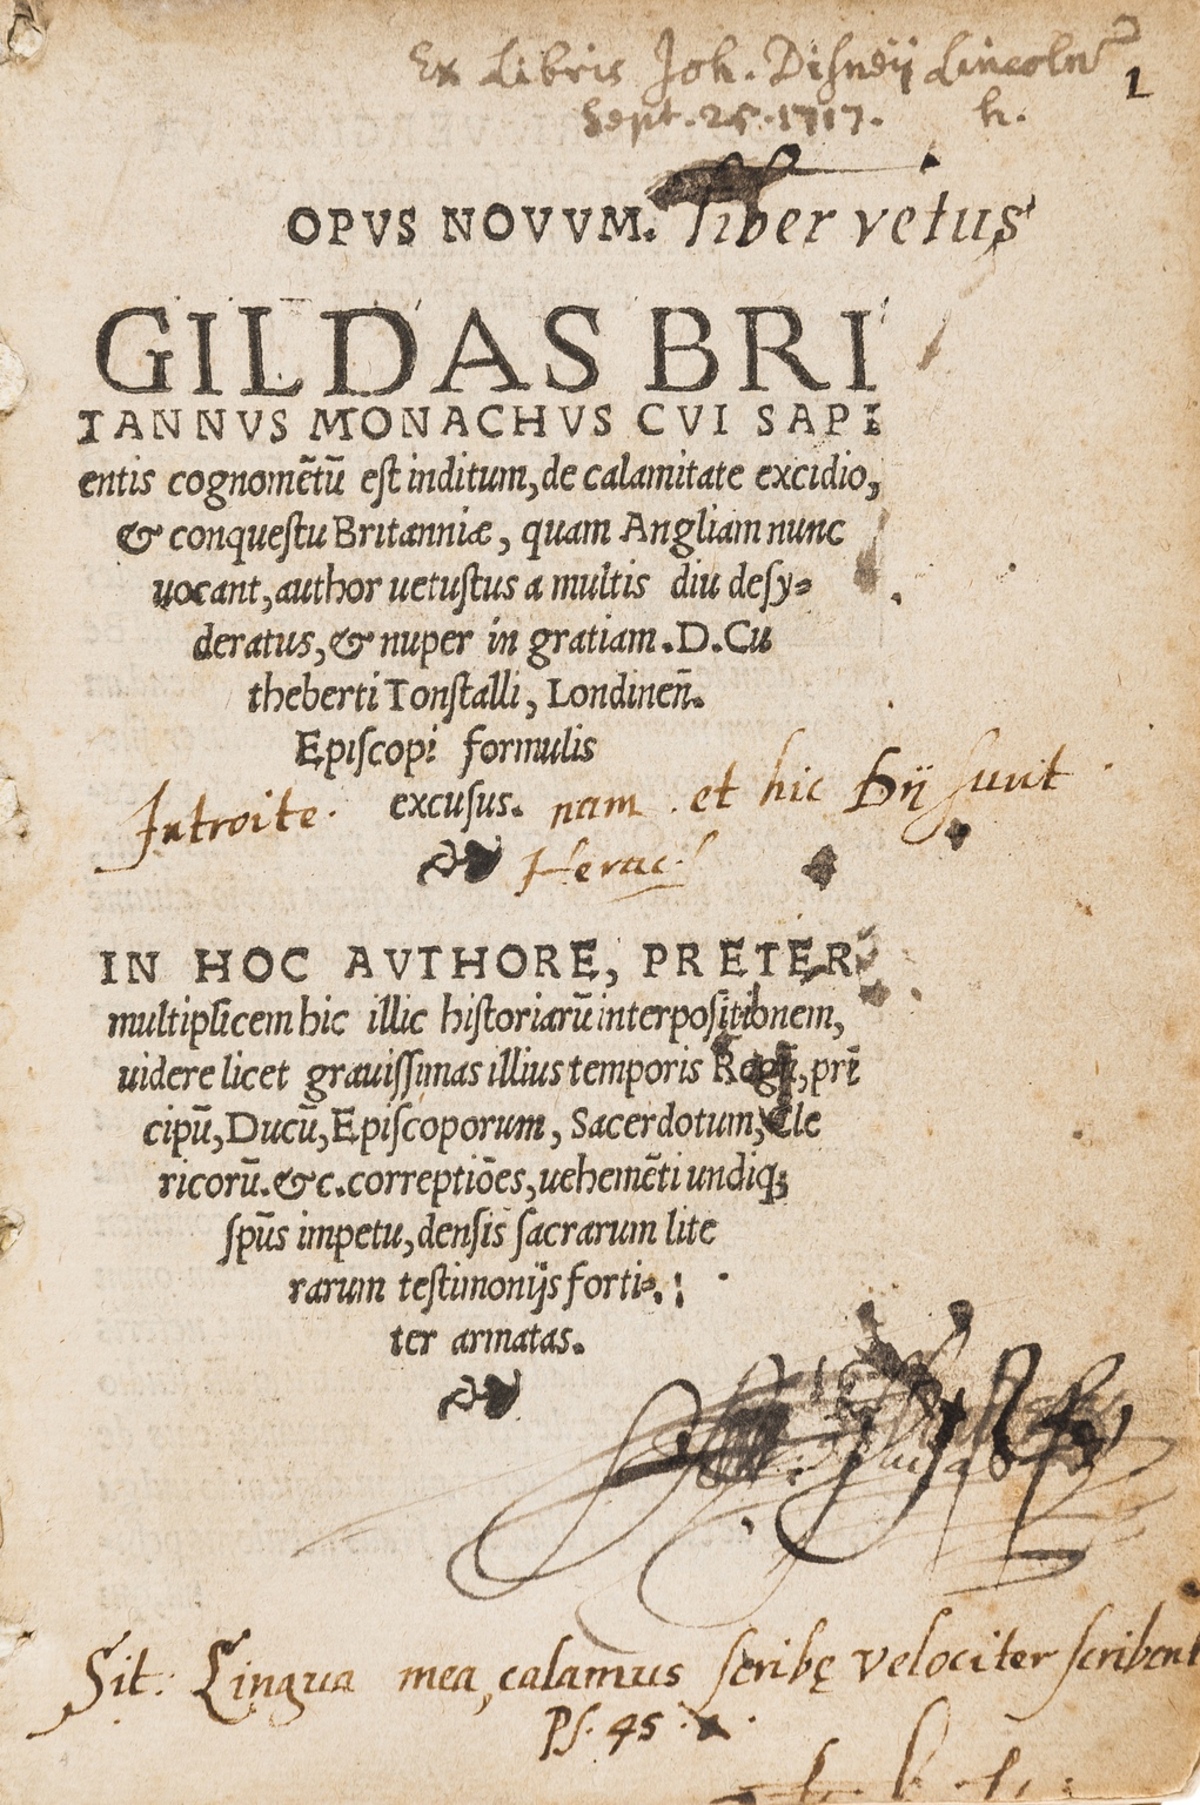 Ex Libris Joh. Disneÿ Lincoln
1
Sept. 25. 1717. h.
OPVS NOVVM. liber vetus
GILDAS BRI
TANNVS MONACHVS CVI SAPI
entis cognomẽtũ eſt inditum, de calamitate excidio,
& conqueſtu Britanniæ, quam Angliam nunc
uocant, author uetuſtus a multis diu deſy⸗
deratus, & nuper in gratiam. D. Cu
theberti Tonſtalli, Londineñ.
Epiſcopi formulis
excuſus.
Introite. nam et hic Dÿ sunt
Herac:
IN HOC AVTHORE, PRETER
multiplicem hic illic hiſtoriarũ interpoſitionem,
uidere licet grauiſſimas illius temporis Regũ, prĩ
cipũ, Ducũ, Epiſcoporum, Sacerdotum, Cle
ricorũ. &c. correptiões, uehemẽti undiq;
ſpũs impetu, denſis ſacrarum lite
rarum teſtimonijs forti⸗
ter armatas.
Sit: Lingua mea, calamus scribę velociter scribent
Ps. 45.